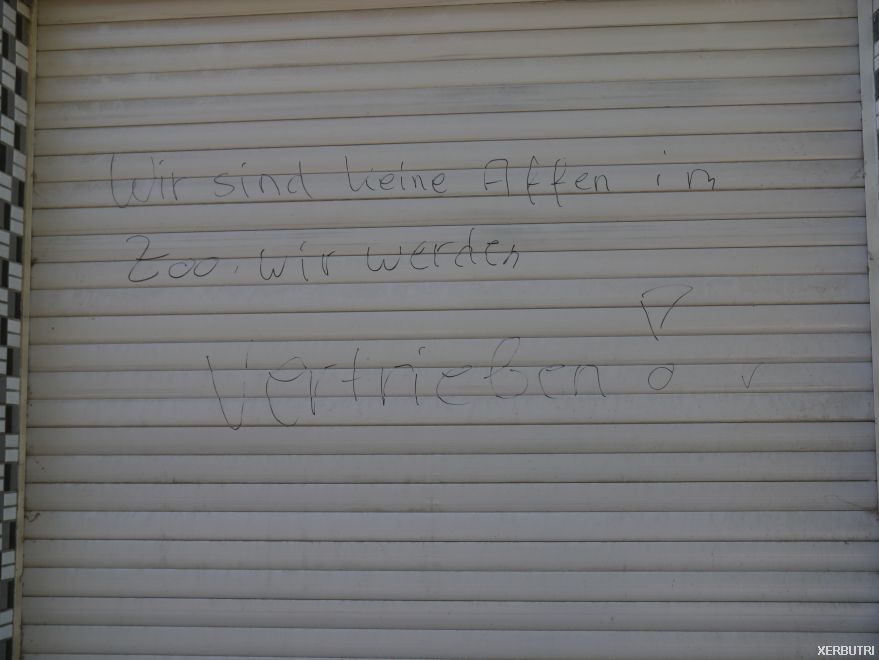 Wir sind keine Affen im
Zoo. wir werden
Vertrieben!
XERBUTRI